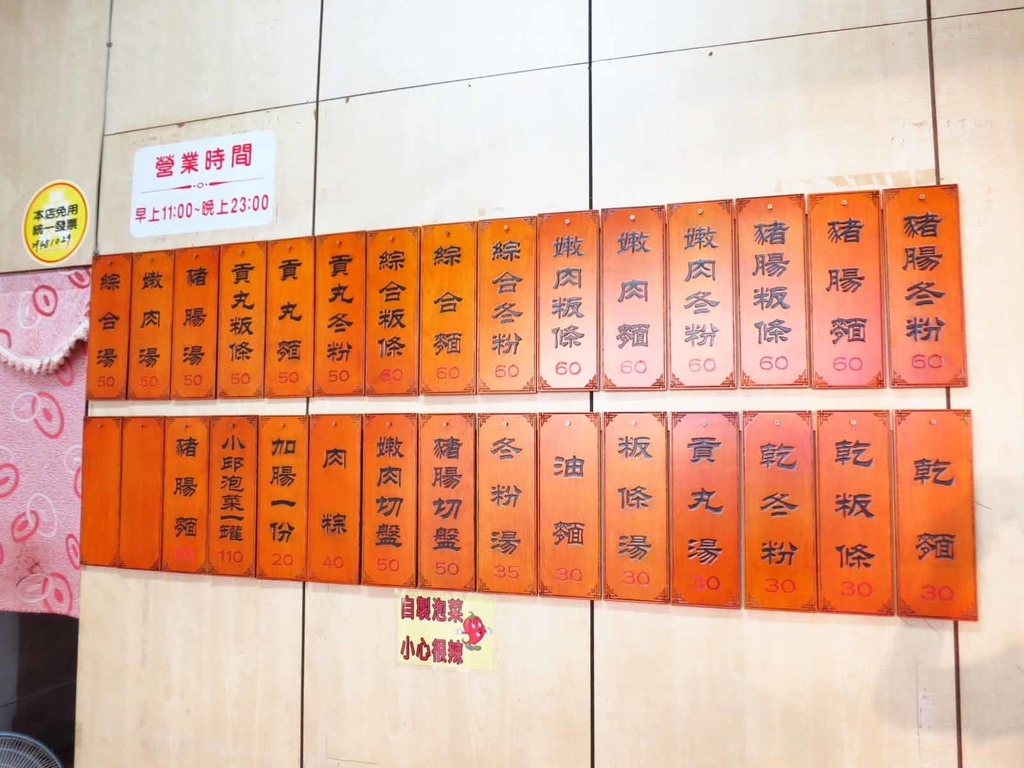 營業時間
早上11:00~晚上23:00
本店免用
統一發票
豬腸冬粉 60
豬腸麵 60
豬腸粄條 60
嫩肉冬粉 60
嫩肉麵 60
嫩肉粄條 60
綜合冬粉 60
綜合麵 60
綜合粄條 60
貢丸冬粉 50
貢丸麵 50
貢丸粄條 50
豬腸湯 50
嫩肉湯 50
綜合湯 50
乾麵 30
乾粄條 30
乾冬粉 30
貢丸湯 30
粄條湯 30
油麵 30
冬粉湯 35
豬腸切盤 50
嫩肉切盤 50
肉粽 40
加腸一份 20
小邱泡菜一罐 110
豬腸麵
自製泡菜
小心很辣